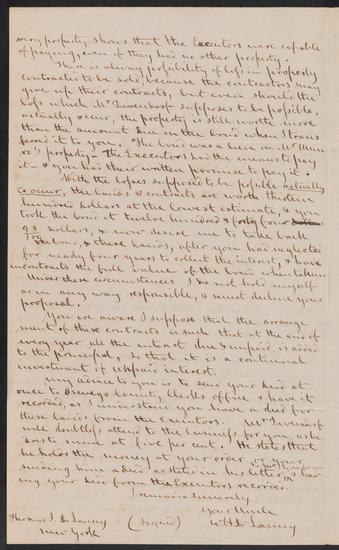 very property shows that the Executors were capable
of paying, even if they had no other property.
There is always possibility of loss in property
contracted to be sold, because the contractors may
give up their contracts, but even should the
loss which Mr Devendorf supposes to be possible,
actually occur, the property is still worth more
than the amount due on the bond when I trans
ferred it to you. The bond was a lien on Mr
property – the Executors had the means to pay
it – & you had their written promise to pay it.
With the losses supposed to be possible actually
to occur, the lands & contracts are worth thirteen
hundred dollars at the lowest estimate, & you
took the bond at twelve hundred & forty four
98/100 dollars, & now desire me to take back
the bond, & these lands, after you had neglected
for nearly four years to collect the interest, & have
in contracts the full value of the bond when taken.
Under these circumstances I do not hold myself
as in any way responsible, & must decline your
proposal.
You are aware I suppose that the arrange
ment of these contracts is such that at the end of
every year all the interest due & unpaid, is added
to the principal, so that it is a continual
investment of unpaid interest.
My advice to you is to send your deed at
once to Oswego County Clerks office & have it
recorded, as I understand you have a deed for
these lands from the Executors. Mr Devendorf
will doubtless attend to the business, for you, as he
does to mine at five per cent. He states that
he holds the money at your order
sending him a deed, as stated in his letter, or hav
ing your deed from the Executors recorded.
I remain sincerely
Your Uncle
Thomas J. De Lancey (signed) W. H. De Lancey
New York